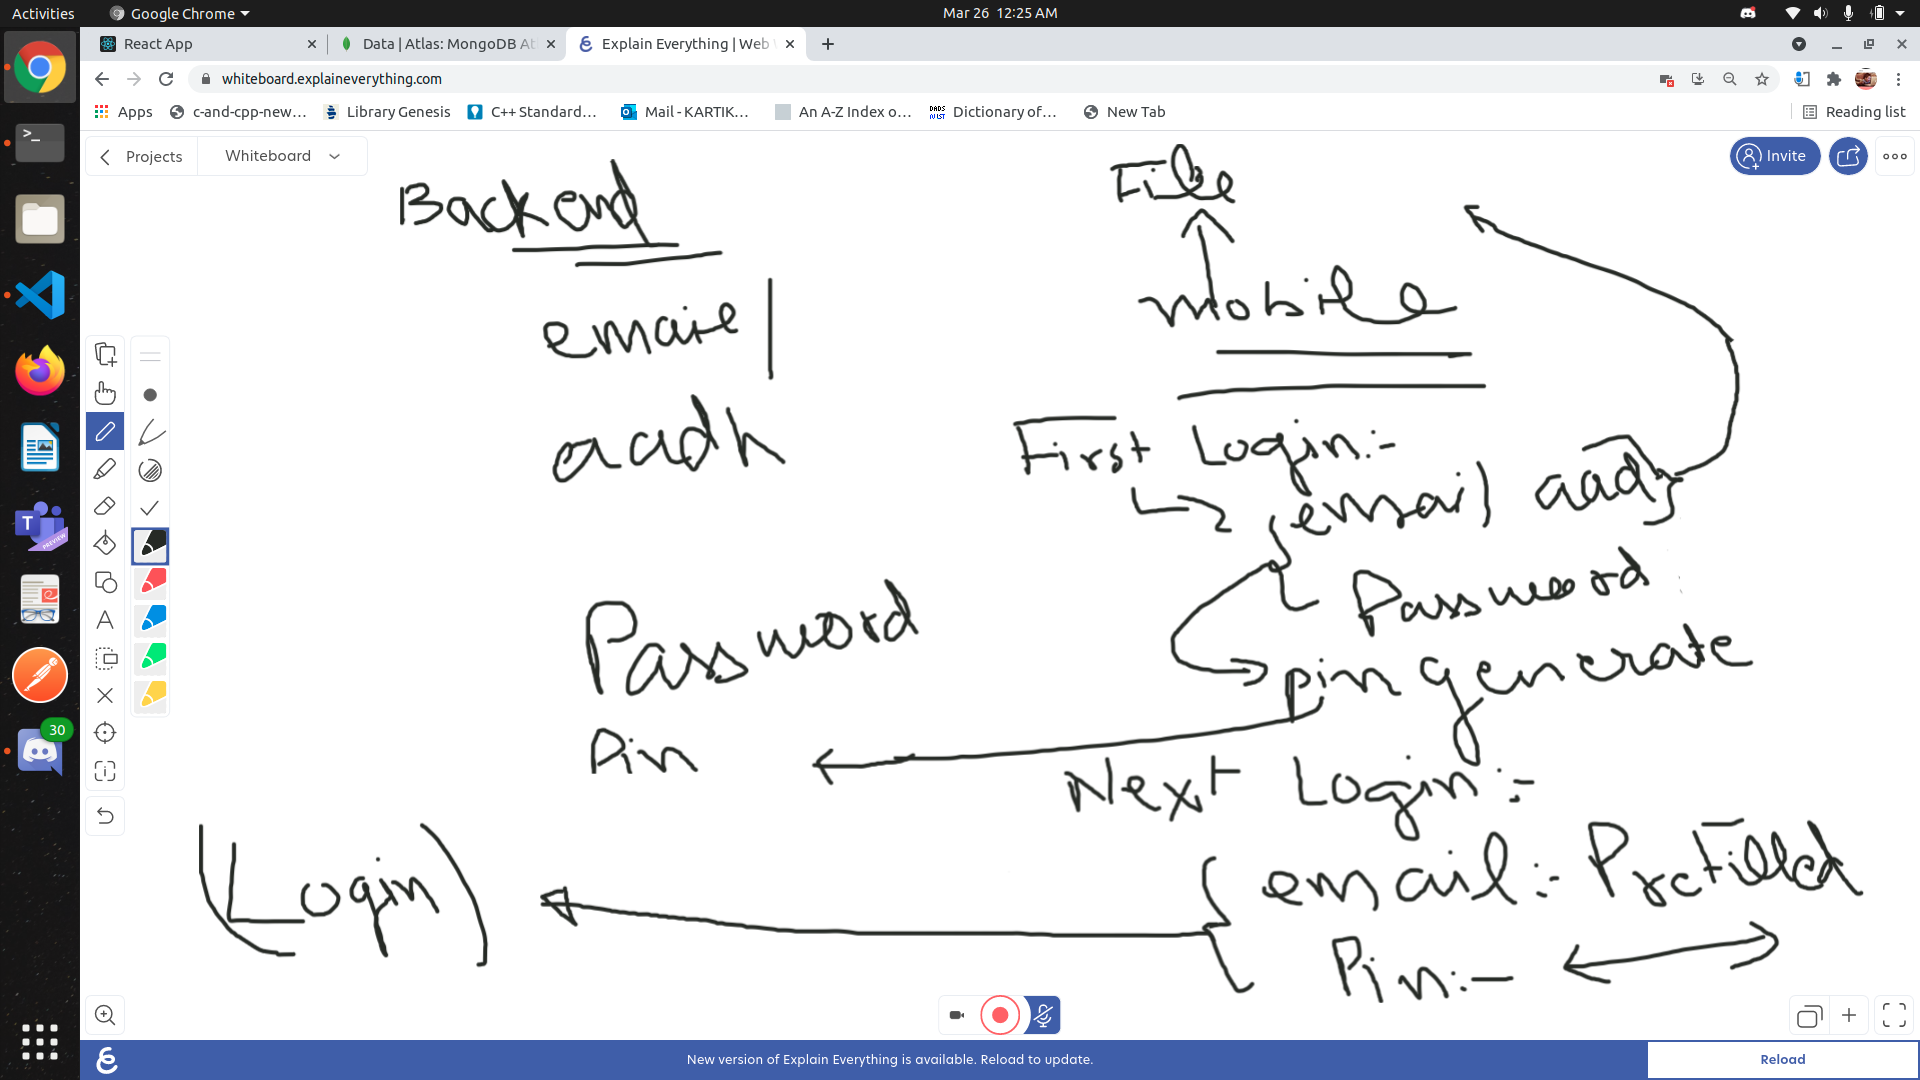 Activities Google Chrome Mar 26 12:25 AM
React App Data | Atlas: MongoDB At Explain Everything | Web
whiteboard.explaineverything.com
Apps c-and-cpp-new… Library Genesis C++ Standard… Mail - KARTIK… An A-Z Index o… DADS IN LIST Dictionary of… New Tab Reading list
Projects Whiteboard Invite
Backend
email
aadh
Password
Pin
(Login)
File
mobile
First Login:-
{email aad}
Password
pin generate
Next Login:-
{ email:- Prefilled
Pin:-
T PREVIEW
30
New version of Explain Everything is available. Reload to update. Reload